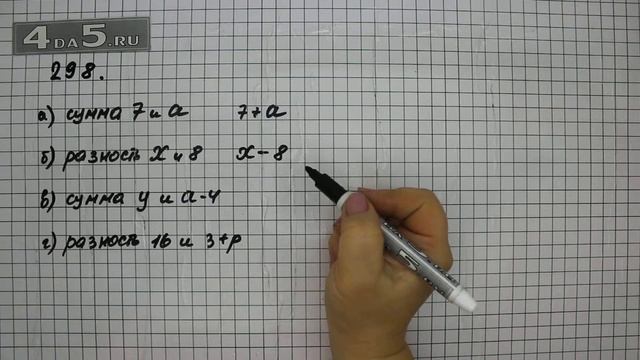 4DA5.RU
298.
а) сумма 7 и a 7+a
б) разность x и 8 x-8
в) сумма y и a-4
г) разность 16 и 3+p